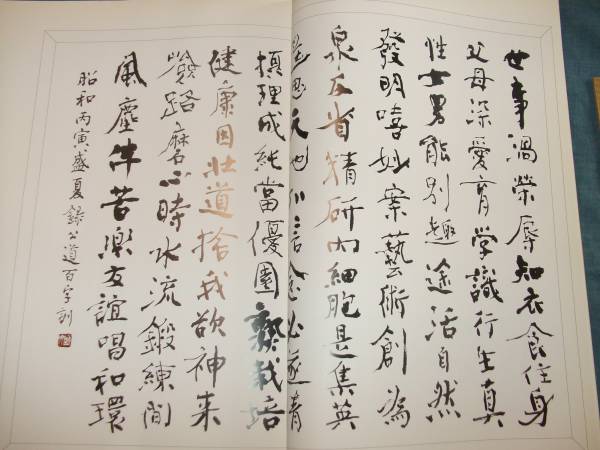 世事渦榮辱知衣食住身
父母深愛育学識行生真
性士男能別趣途活自然
發明嘻妙案藝術創為
泉反省精研内細胞是集英
言念必遂青
理成純當優園熟栽培
健康因壮道捨我欲神来
路磨心時水流鍛練間
風塵伴苦樂友誼唱和環
昭和丙寅盛夏録公道百字訓